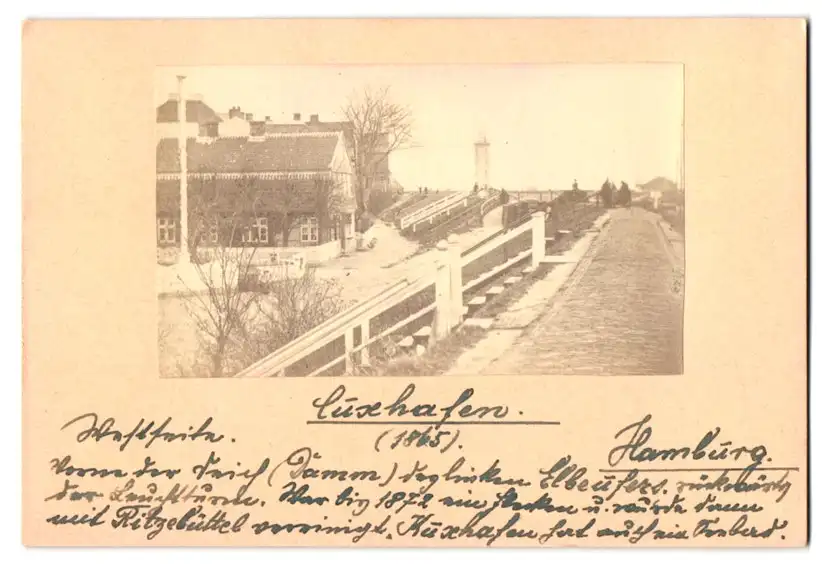 Cuxhafen.
(1865).
Westseite.
Hamburg.
Vorne der Deich (Damm) des linken Elbeufers, rückwärts
der Leuchtturm. War bis 1872 ein Flecken u. wurde dann
mit Ritzebüttel vereinigt. Kuxhafen hat auch ein Seebad.